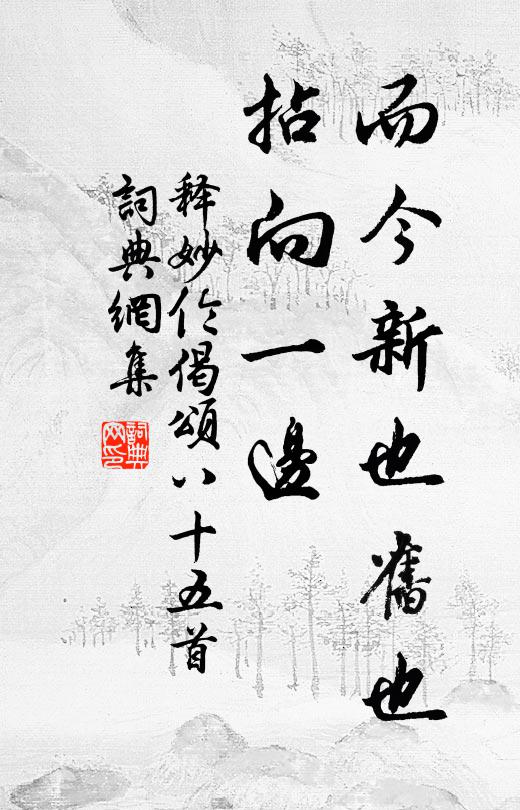 而今新也舊也
拈向一邊
释妙伦偈頌八十五首
詞典網集
詞典
网印